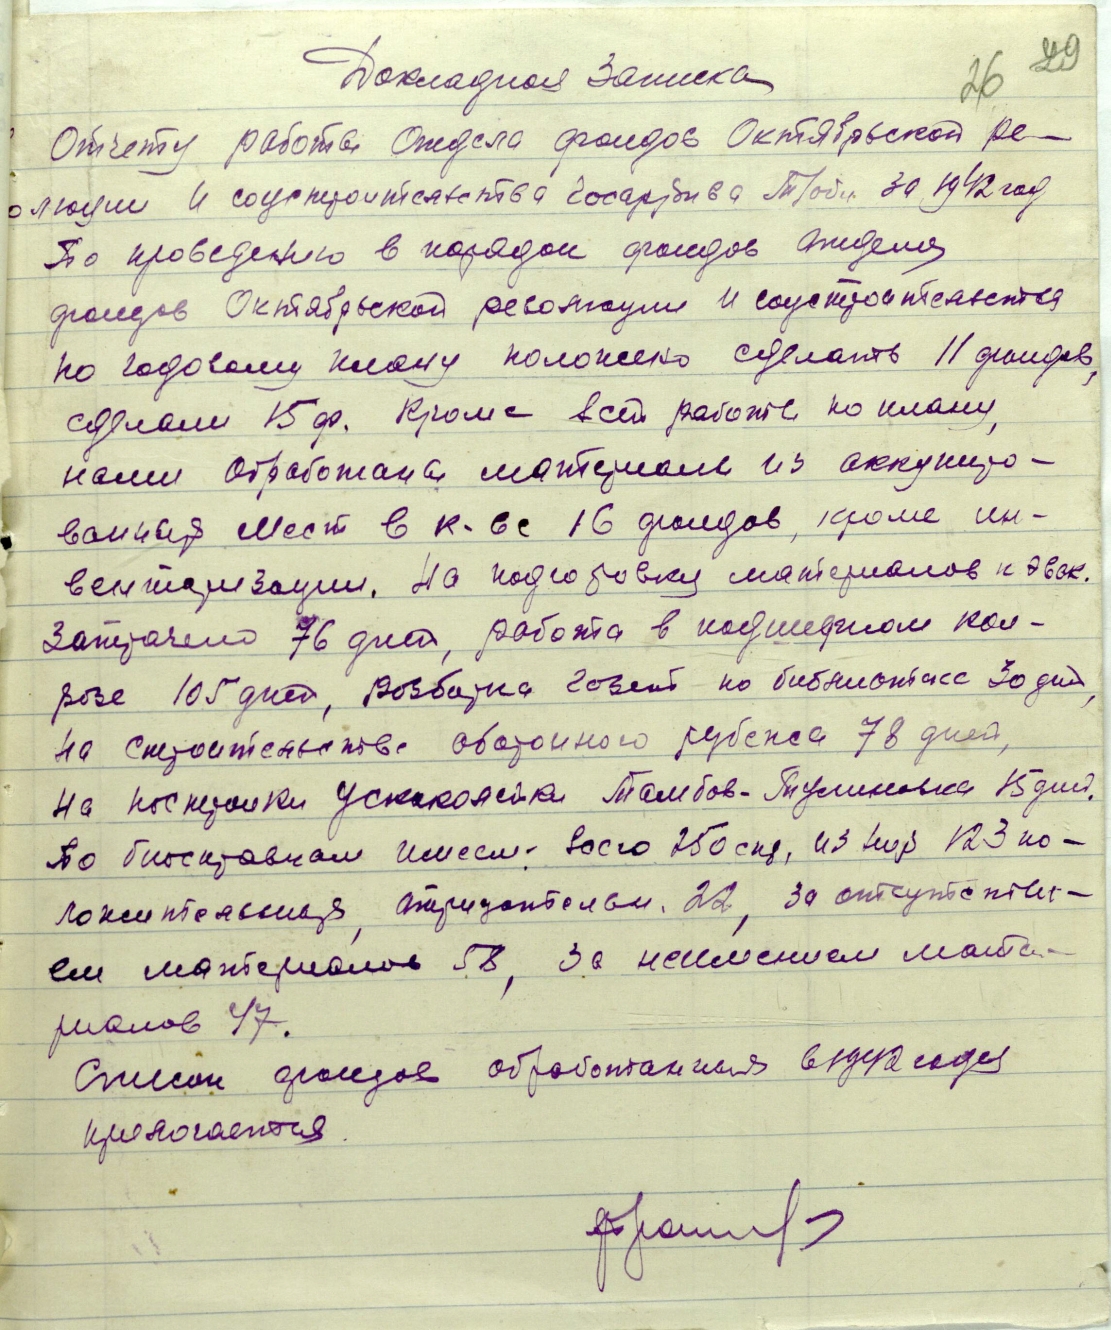 26 29
Докладная Записка
Отчету работы Отдела фондов Октябрьской ре-
олюции и соцстроительства Госархива Т/обл. за 1942 год
По проведению в порядок фондов отдела
фондов Октябрьской революции и соцстроительства
по годовому плану положено сделать 11 фондов,
сделали 15 ф. Кроме всей работы по плану,
нами обработана материалы из аккупиро-
ванных мест в к-ве 16 фондов, кроме ин-
вентаризации. На подготовку материалов к эвак.
затрачено 76 дней, работа в подшефном кол-
хозе 105 дней, разборка газет по библиотеке 30 дней,
на строительстве оборонного рубежа 78 дней,
на постройки узкоколейки Тамбов-Тулиновка 15 дней.
По биосправкам имеем: всего 250 спр., из них 123 по-
ложительных, отрицательн. 22, за отсутстви-
ем материалов 58, за неимением мате-
риалов 47.
Список фондов обработанных в 1942 году
прилогается.